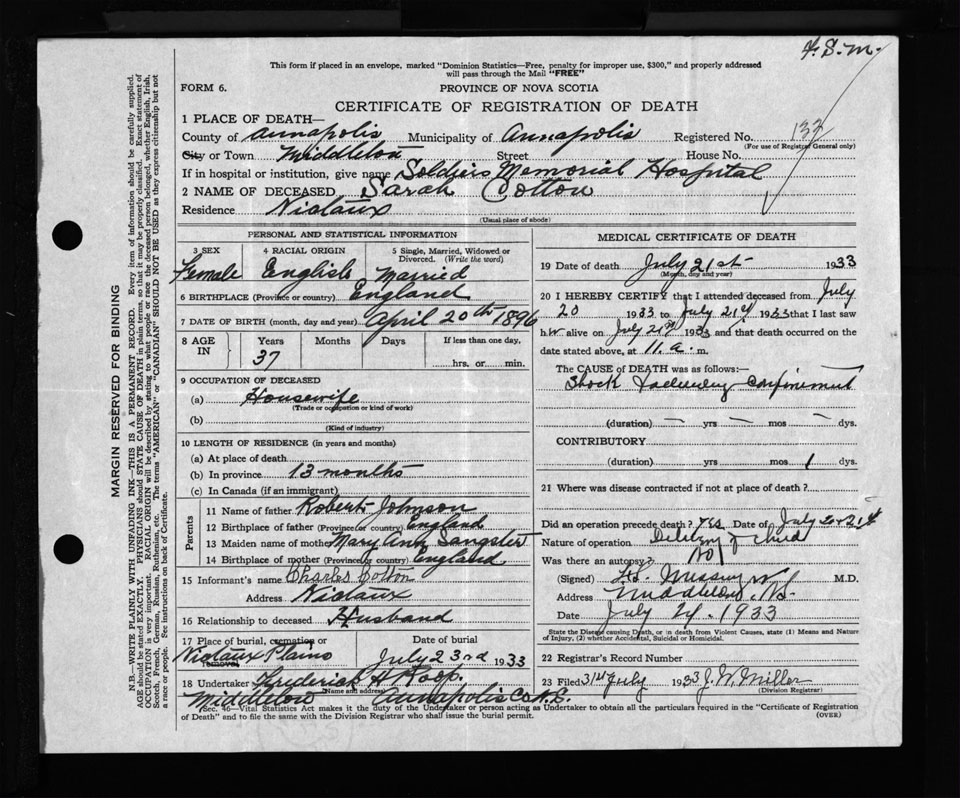 F.S.M.
This form if placed in an envelope, marked "Dominion Statistics—Free, penalty for improper use, $300," and properly addressed
will pass through the Mail "FREE"
FORM 6.
PROVINCE OF NOVA SCOTIA
CERTIFICATE OF REGISTRATION OF DEATH
1 PLACE OF DEATH—
County of Annapolis Municipality of Annapolis Registered No. 133
(For use of Registrar General only)
City or Town Middleton Street House No.
If in hospital or institution, give name Soldiers Memorial Hospital
2 NAME OF DECEASED Sarah Cotton
Residence Nictaux
(Usual place of abode)
PERSONAL AND STATISTICAL INFORMATION
3 SEX 4 RACIAL ORIGIN 5 Single, Married, Widowed or
Divorced. (Write the word)
Female English Married
6 BIRTHPLACE (Province or country) England
7 DATE OF BIRTH (month, day and year) April 20th 1896
8 AGE IN Years Months Days If less than one day,
37
hrs. or min.
9 OCCUPATION OF DECEASED
(a) Housewife
(Trade or occupation or kind of work)
(b)
(Kind of industry)
10 LENGTH OF RESIDENCE (in years and months)
(a) At place of death
(b) In province 13 months
(c) In Canada (if an immigrant)
Parents
11 Name of father Robert Johnson
12 Birthplace of father (Province or country) England
13 Maiden name of mother Mary Ann Sangster
14 Birthplace of mother (Province or country) England
15 Informant's name Charles Cotton
Address Nictaux
16 Relationship to deceased Husband
17 Place of burial, cremation or
removal Nictaux Plains
Date of burial
July 23rd 1933
18 Undertaker Frederick A Roop.
(Name and address)
Middleton Annapolis Co N.S.
MEDICAL CERTIFICATE OF DEATH
19 Date of death July 21st 1933
(Month, day and year)
20 I HEREBY CERTIFY that I attended deceased from July
20 1933 to July 21st 1933 that I last saw
h.er alive on July 21st 1933 and that death occurred on
date stated above, at 11.a. m.
The CAUSE of DEATH was as follows:—
Shock following confinement
(duration) — yrs — mos — dys.
CONTRIBUTORY
(duration) yrs mos 1 dys.
21 Where was disease contracted if not at place of death?
Did an operation precede death? Yes Date of July 20 & 21st
Nature of operation Delivery of child
Was there an autopsy? No
(Signed) M.D.
Address Middleton N.S.
Date July 24. 1933
State the Disease causing Death, or in death from Violent Causes, state (1) Means and Nature
of Injury, (2) whether Accidental, Suicidal or Homicidal.
22 Registrar's Record Number
23 Filed 31st July 1933 J. W. Miller
(Division Registrar)
Sec. 46—Vital Statistics Act makes it the duty of the Undertaker or person acting as Undertaker to obtain all the particulars required in the "Certificate of Registration
of Death" and to file the same with the Division Registrar who shall issue the burial permit.
(OVER)
MARGIN RESERVED FOR BINDING
N.B.—WRITE PLAINLY WITH UNFADING INK—THIS IS A PERMANENT RECORD. Every item of information should be carefully supplied.
AGE should be stated EXACTLY. PHYSICIANS should STATE CAUSE OF DEATH in plain terms, so that it may be properly classified. Exact statement of
OCCUPATION is very important. RACIAL ORIGIN will be described by stating to what people or race the deceased person belonged, whether English, Irish,
Scotch, French, German, Russian, Ruthenian, etc. The terms "AMERICAN" or "CANADIAN" SHOULD NOT BE USED as they express citizenship but not
a race or people. See instructions on back of Certificate.